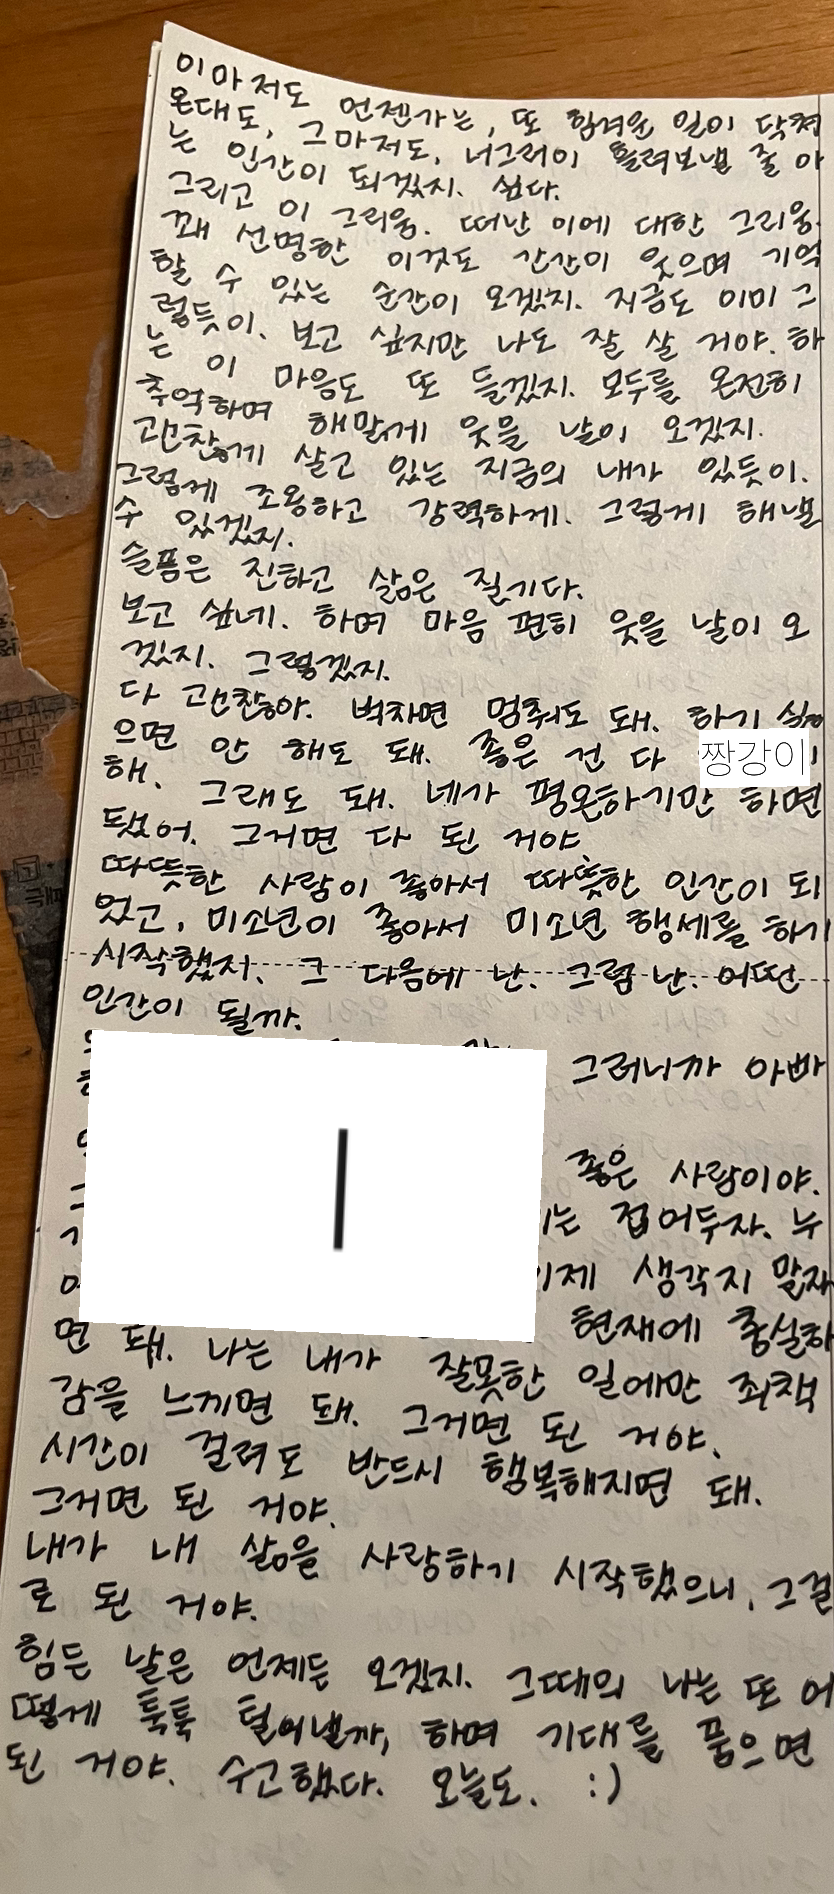 이마저도 언젠가는, 또 힘겨운 일이 닥쳐
온대도, 그마저도, 너그러이 흘려보낼 줄 아
는 인간이 되겠지. 싶다.
그리고 이 그리움. 떠난 이에 대한 그리움.
꽤 선명한 이것도 간간이 웃으며 기억
할 수 있는 순간이 오겠지. 지금도 이미 그
렇듯이. 보고 싶지만 나도 잘 살 거야. 하
는 이 마음도 또 들겠지. 모두를 온전히
추억하며 해맑게 웃을 날이 오겠지.
괜찮게 살고 있는 지금의 내가 있듯이.
그렇게 조용하고 강력하게. 그렇게 해낼
수 있겠지.
슬픔은 진하고 삶은 질기다.
보고 싶네. 하며 마음 편히 웃을 날이 오
겠지. 그렇겠지.
다 괜찮아. 벅차면 멈춰도 돼. 하기 싫
으면 안 해도 돼. 좋은 건 다 짱강이
해. 그래도 돼. 네가 평온하기만 하면
됐어. 그거면 다 된 거야
따뜻한 사람이 좋아서 따뜻한 인간이 되
었고, 미소년이 좋아서 미소년 행세를 하기
시작했지. 그 다음에 난. 그럼 난. 어떤
인간이 될까.
그러니까 아빠
좋은 사람이야.
는 접어두자. 누
이제 생각지 말자
면 돼. 나는 내가 현재에 충실하
잘못한 일에만 죄책
감을 느끼면 돼. 그거면 된 거야.
시간이 걸려도 반드시 행복해지면 돼.
그거면 된 거야.
내가 내 삶을 사랑하기 시작했으니, 그걸
로 된 거야.
힘든 날은 언제든 오겠지. 그때의 나는 또 어
떻게 툭툭 털어낼까, 하며 기대를 품으면
된 거야. 수고했다. 오늘도. :)